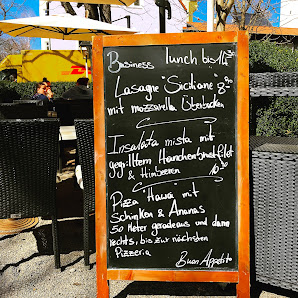 DHL
Business lunch bis 14³⁰
Lasagne "Siciliane" 8.90
mit mozzarella überbacken
Insalata mista mit
gegrilltem Hänchenbrustfilet
& Himbeeren 10.50
Pizza "Hawaii" mit
Schinken & Ananas
50 Meter geradeaus und dann
rechts, bis zur nächsten
Pizzeria
Buon Appetito